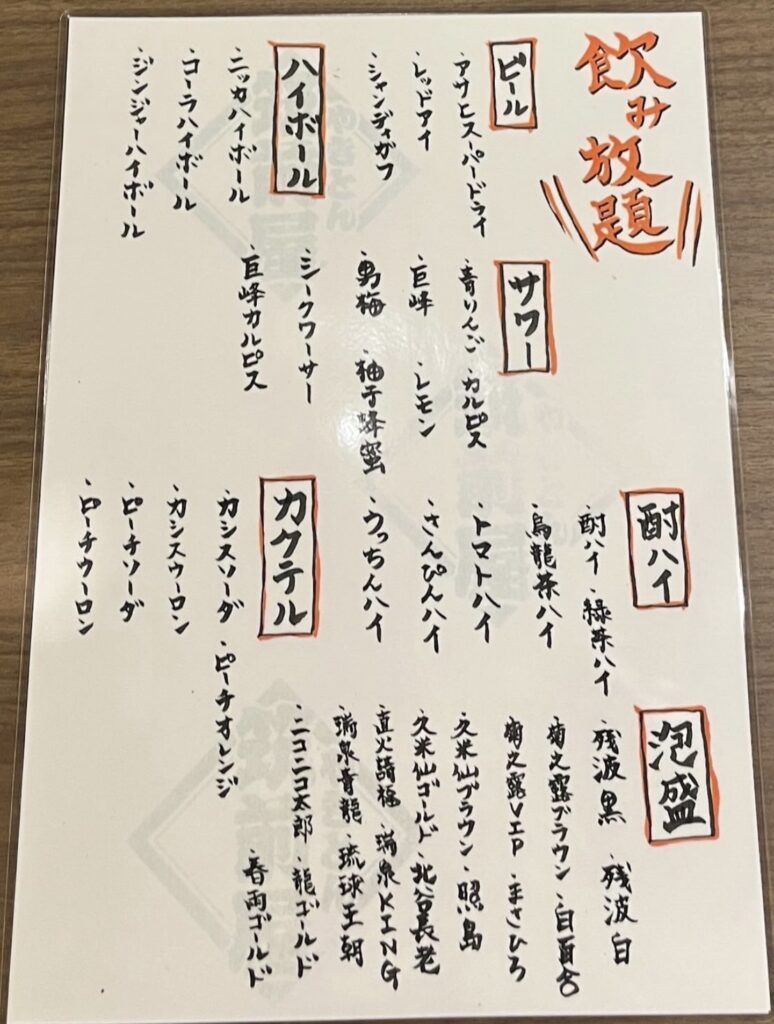 飲み放題
ビール
・アサヒスーパードライ
・レッドアイ
・シャンディガフ
ハイボール
・ニッカハイボール
・コーラハイボール
・ジンジャーハイボール
サワー
・青りんご・カルピス
・巨峰・レモン
・男梅・柚子蜂蜜
・シークワーサー
・巨峰カルピス
酎ハイ
・酎ハイ・緑茶ハイ
・烏龍茶ハイ
・トマトハイ
・さんぴんハイ
・うっちんハイ
カクテル
・カシスソーダ・ピーチオレンジ
・カシスウーロン
・ピーチソーダ
・ピーチウーロン
泡盛
・残波黒・残波白
・菊之露ブラウン・白百合
・菊之露VIP・まさひろ
・久米仙ブラウン・照島
・久米仙ゴールド・北谷長老
・直火請福・瑞泉KING
・瑞泉青龍・琉球王朝
・ニコニコ太郎・龍ゴールド
・春雨ゴールド
筑前屋